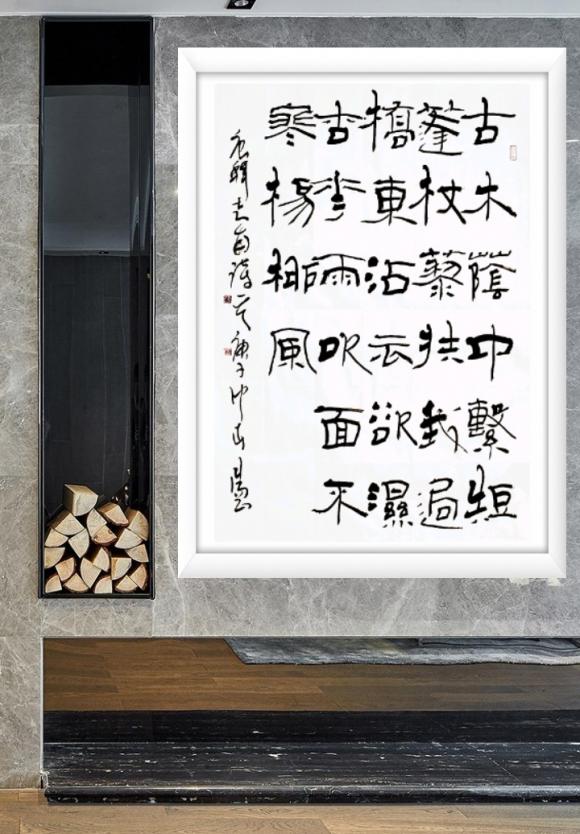 古木蔭中繫短
篷杖藜扶我過
橋東沾衣欲濕
杏花雨吹面不
寒楊柳風
宋釋志南詩 庚子